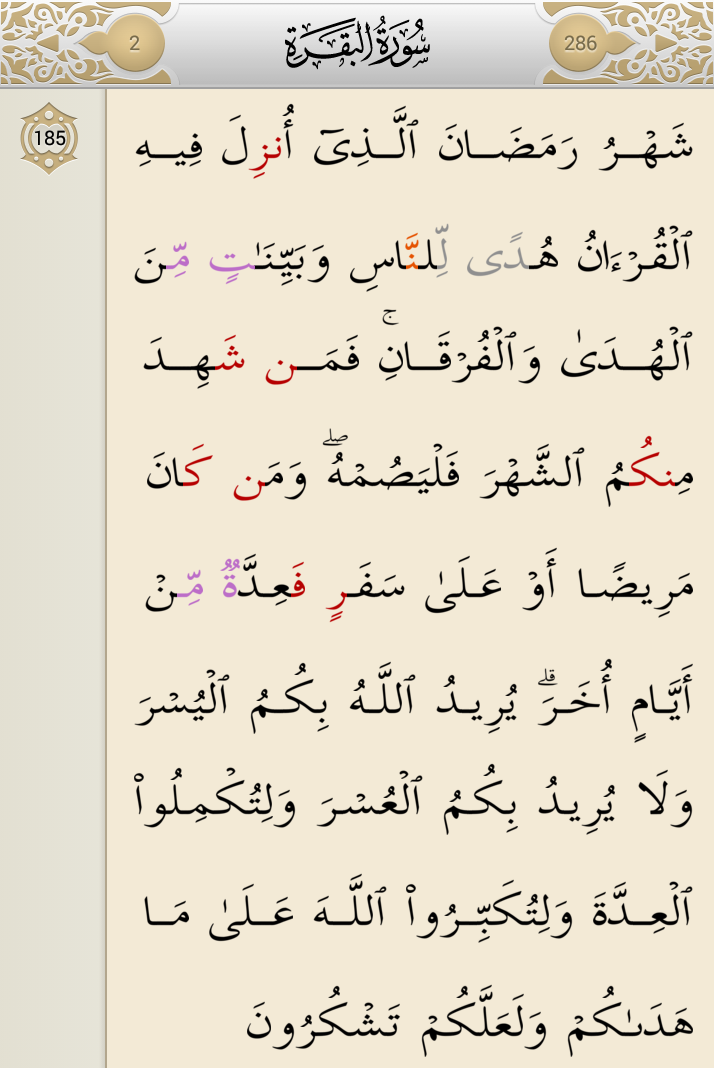 2
سُورَةُ البَقَرَةِ
286
185
شَهْرُ رَمَضَانَ ٱلَّذِىٓ أُنزِلَ فِيهِ
ٱلْقُرْءَانُ هُدًى لِّلنَّاسِ وَبَيِّنَـٰتٍ مِّنَ
ٱلْهُدَىٰ وَٱلْفُرْقَانِ ۚ فَمَن شَهِدَ
مِنكُمُ ٱلشَّهْرَ فَلْيَصُمْهُ ۖ وَمَن كَانَ
مَرِيضًا أَوْ عَلَىٰ سَفَرٍ فَعِدَّةٌ مِّنْ
أَيَّامٍ أُخَرَ ۗ يُرِيدُ ٱللَّهُ بِكُمُ ٱلْيُسْرَ
وَلَا يُرِيدُ بِكُمُ ٱلْعُسْرَ وَلِتُكْمِلُوا۟
ٱلْعِدَّةَ وَلِتُكَبِّرُوا۟ ٱللَّهَ عَلَىٰ مَا
هَدَىٰكُمْ وَلَعَلَّكُمْ تَشْكُرُونَ